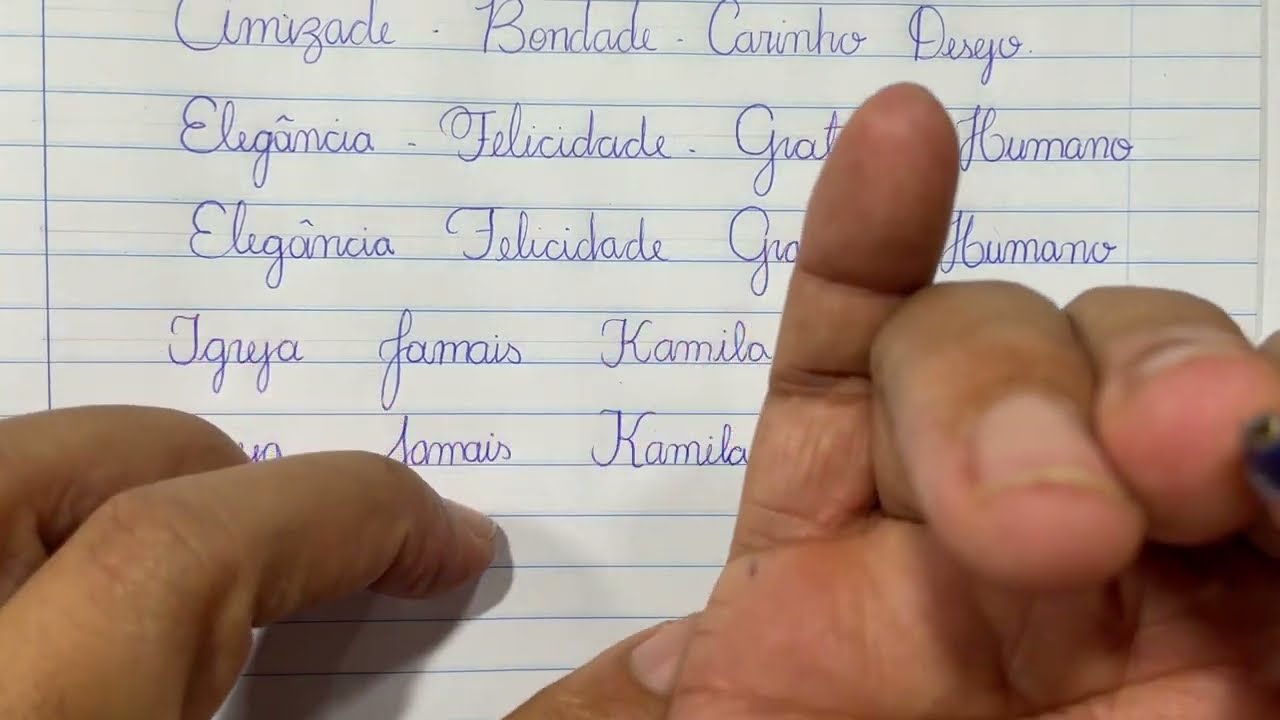 Amizade - Bondade - Carinho Desejo.
Elegância - Felicidade - Humano
Elegância Felicidade Humano
Igreja Jamais Kamila
Jamais Kamila